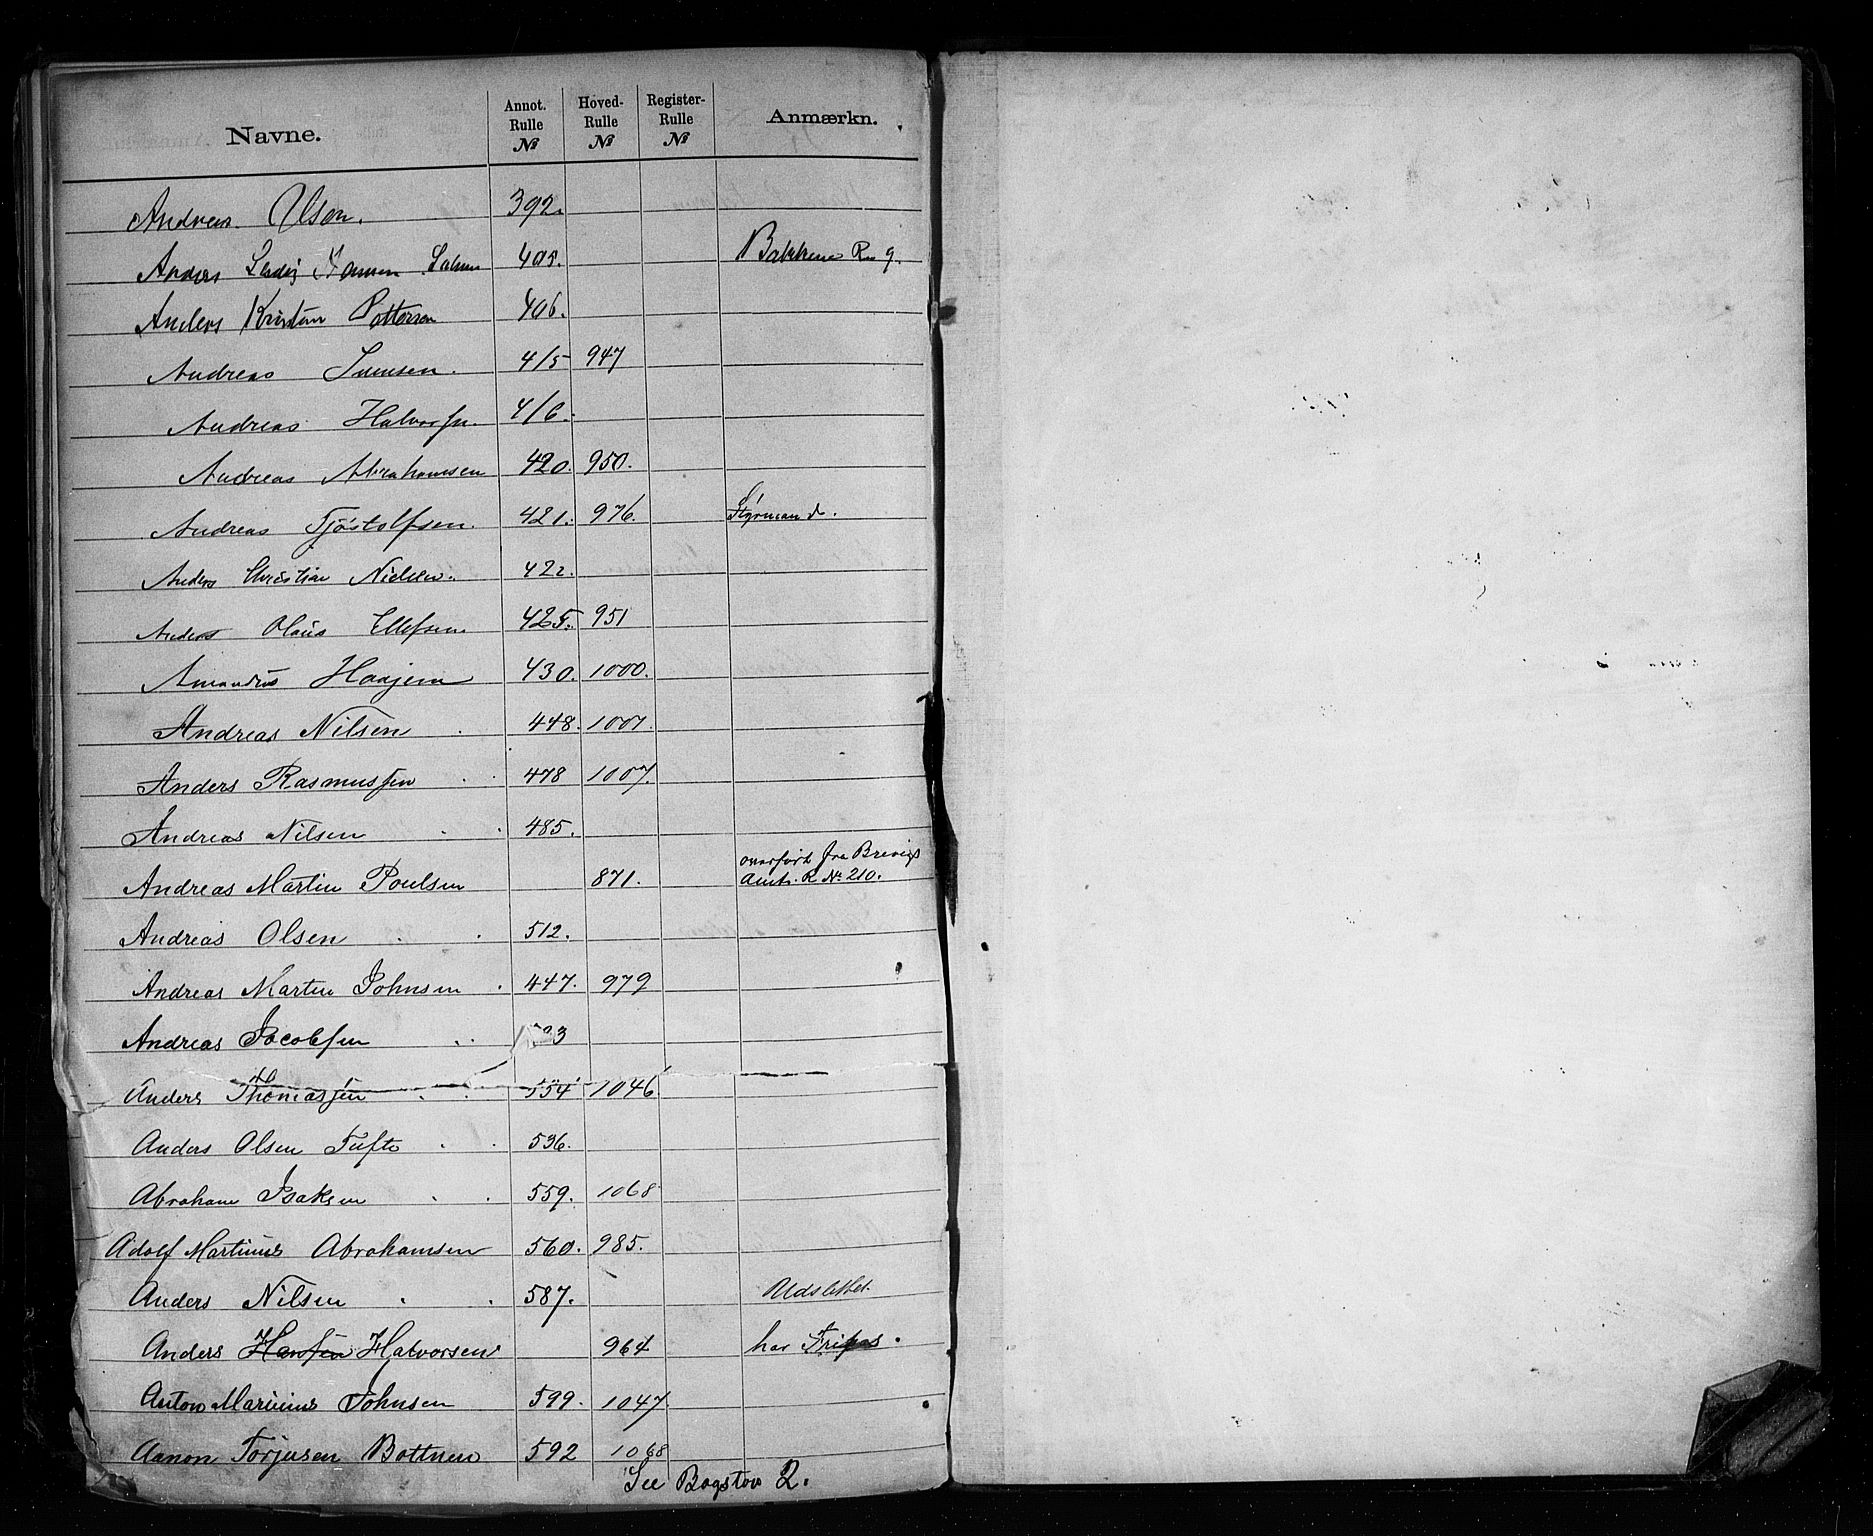 Navne. Annot. Rulle № Hoved- Rulle № Register- Rulle № Anmærkn.
Andreas Olsen. 392.
Anders 405. Bakkene R 9.
Anders Kristian Pettersen 406.
Andreas Svensen. 415 947
Andreas Halvorsen. 416.
Andreas Abrahamsen 420. 950.
Andreas Tjøstolfsen. 421. 976. Styrmand.
Anders Christian Nielsen. 422.
Anders Olaus Ellefsen 425. 951
Amandus Haajem 430. 1000.
Andreas Nilsen 448. 1001.
Anders Rasmussen 478 1007.
Andreas Nilsen 485.
Andreas Martin Poulsen 871. overført fra Brevigs
Annt. R № 210.
Andreas Olsen 512.
Andreas Martin Johnsen 447. 979
Andreas Jacobsen
Anders Thomassen 554 1046
Anders Olsen Tufte 536.
Abraham Isaksen 559. 1068
Adolf Martinus Abrahamsen 560. 985.
Anders Nilsen 587. Udslettet.
Anders Hansen Halvorsen 964 har Fripas.
Anton Marinius Johnsen 599. 1047
Aanon Torjusen Bottnen 592 1068
See Bogstav 2.